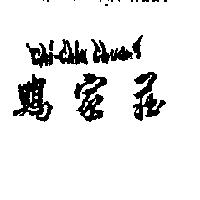 Chi-Chia Chuang
鷄家莊